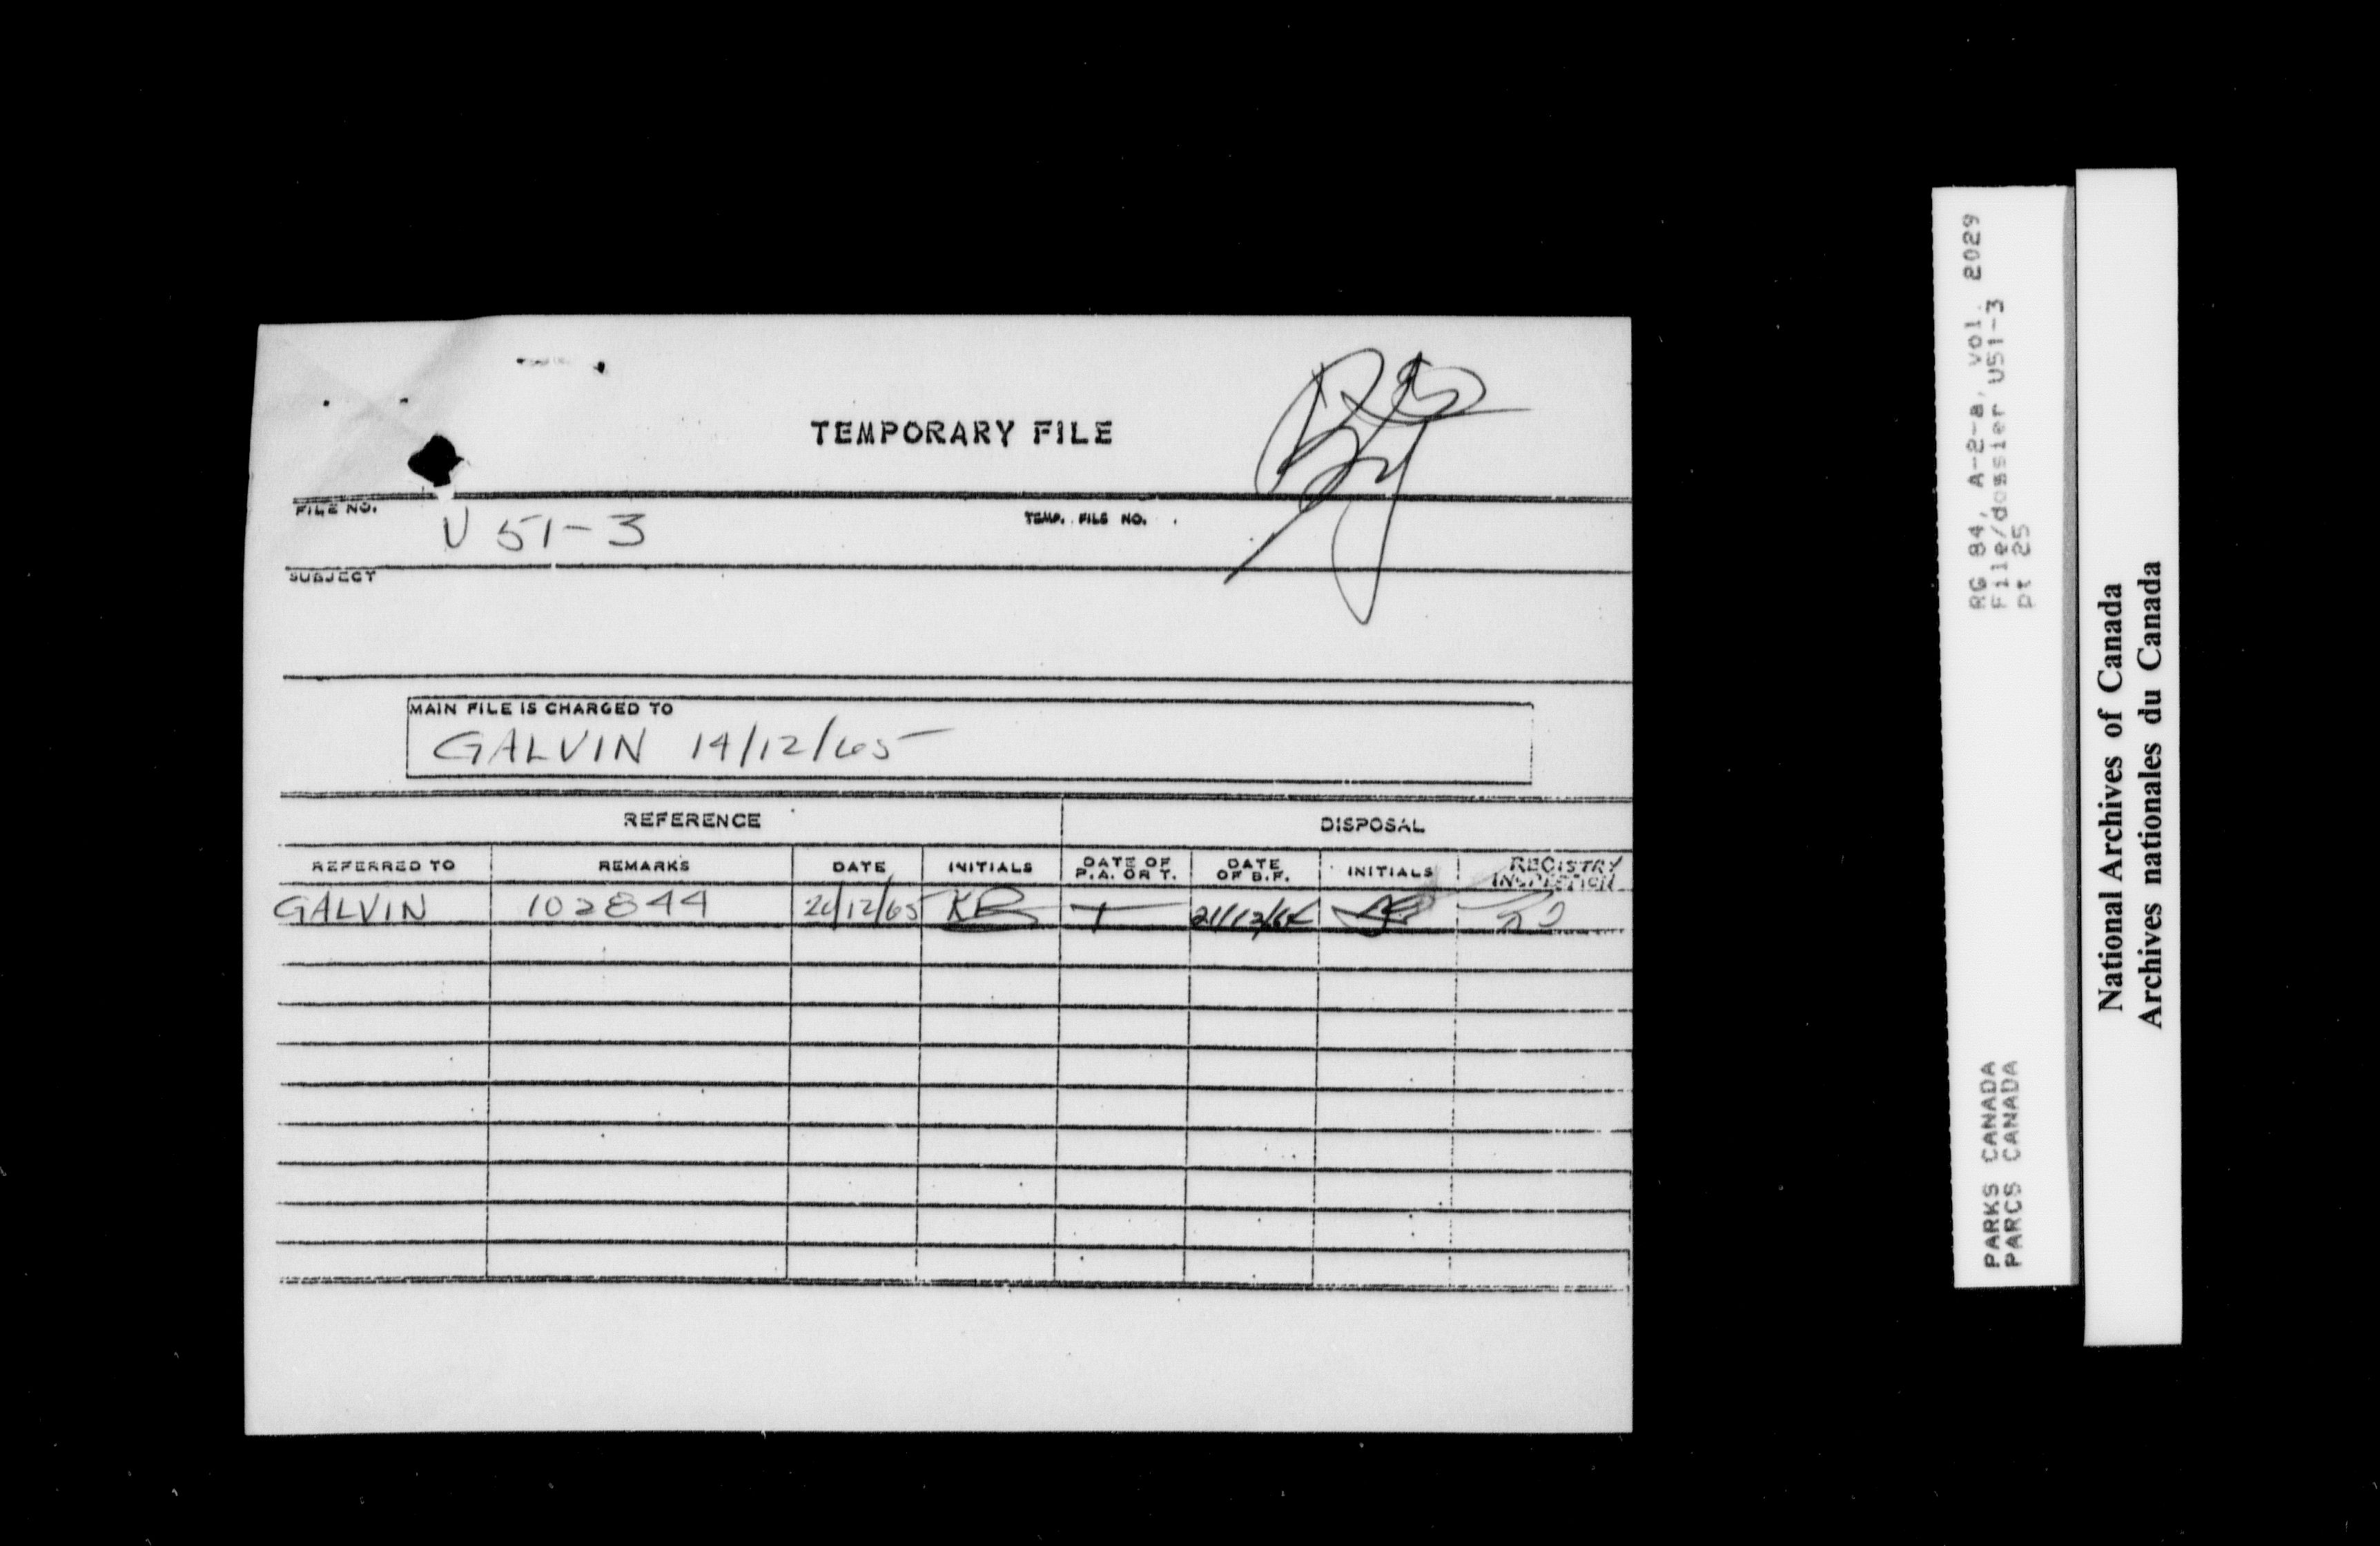 TEMPORARY FILE
FILE NO. U 51-3 TEMP. FILE NO.
SUBJECT
MAIN FILE IS CHARGED TO
GALVIN 14/12/65
REFERENCE DISPOSAL
REFERRED TO REMARKS DATE INITIALS DATE OF P.A. OR T. DATE OF B.F. INITIALS REGISTRY INSPECTION
GALVIN 102844 20/12/65 KB T
RG 84, A-2-a, vol. 2029
File/dossier U51-3
pt 25
PARKS CANADA
PARCS CANADA
National Archives of Canada
Archives nationales du Canada